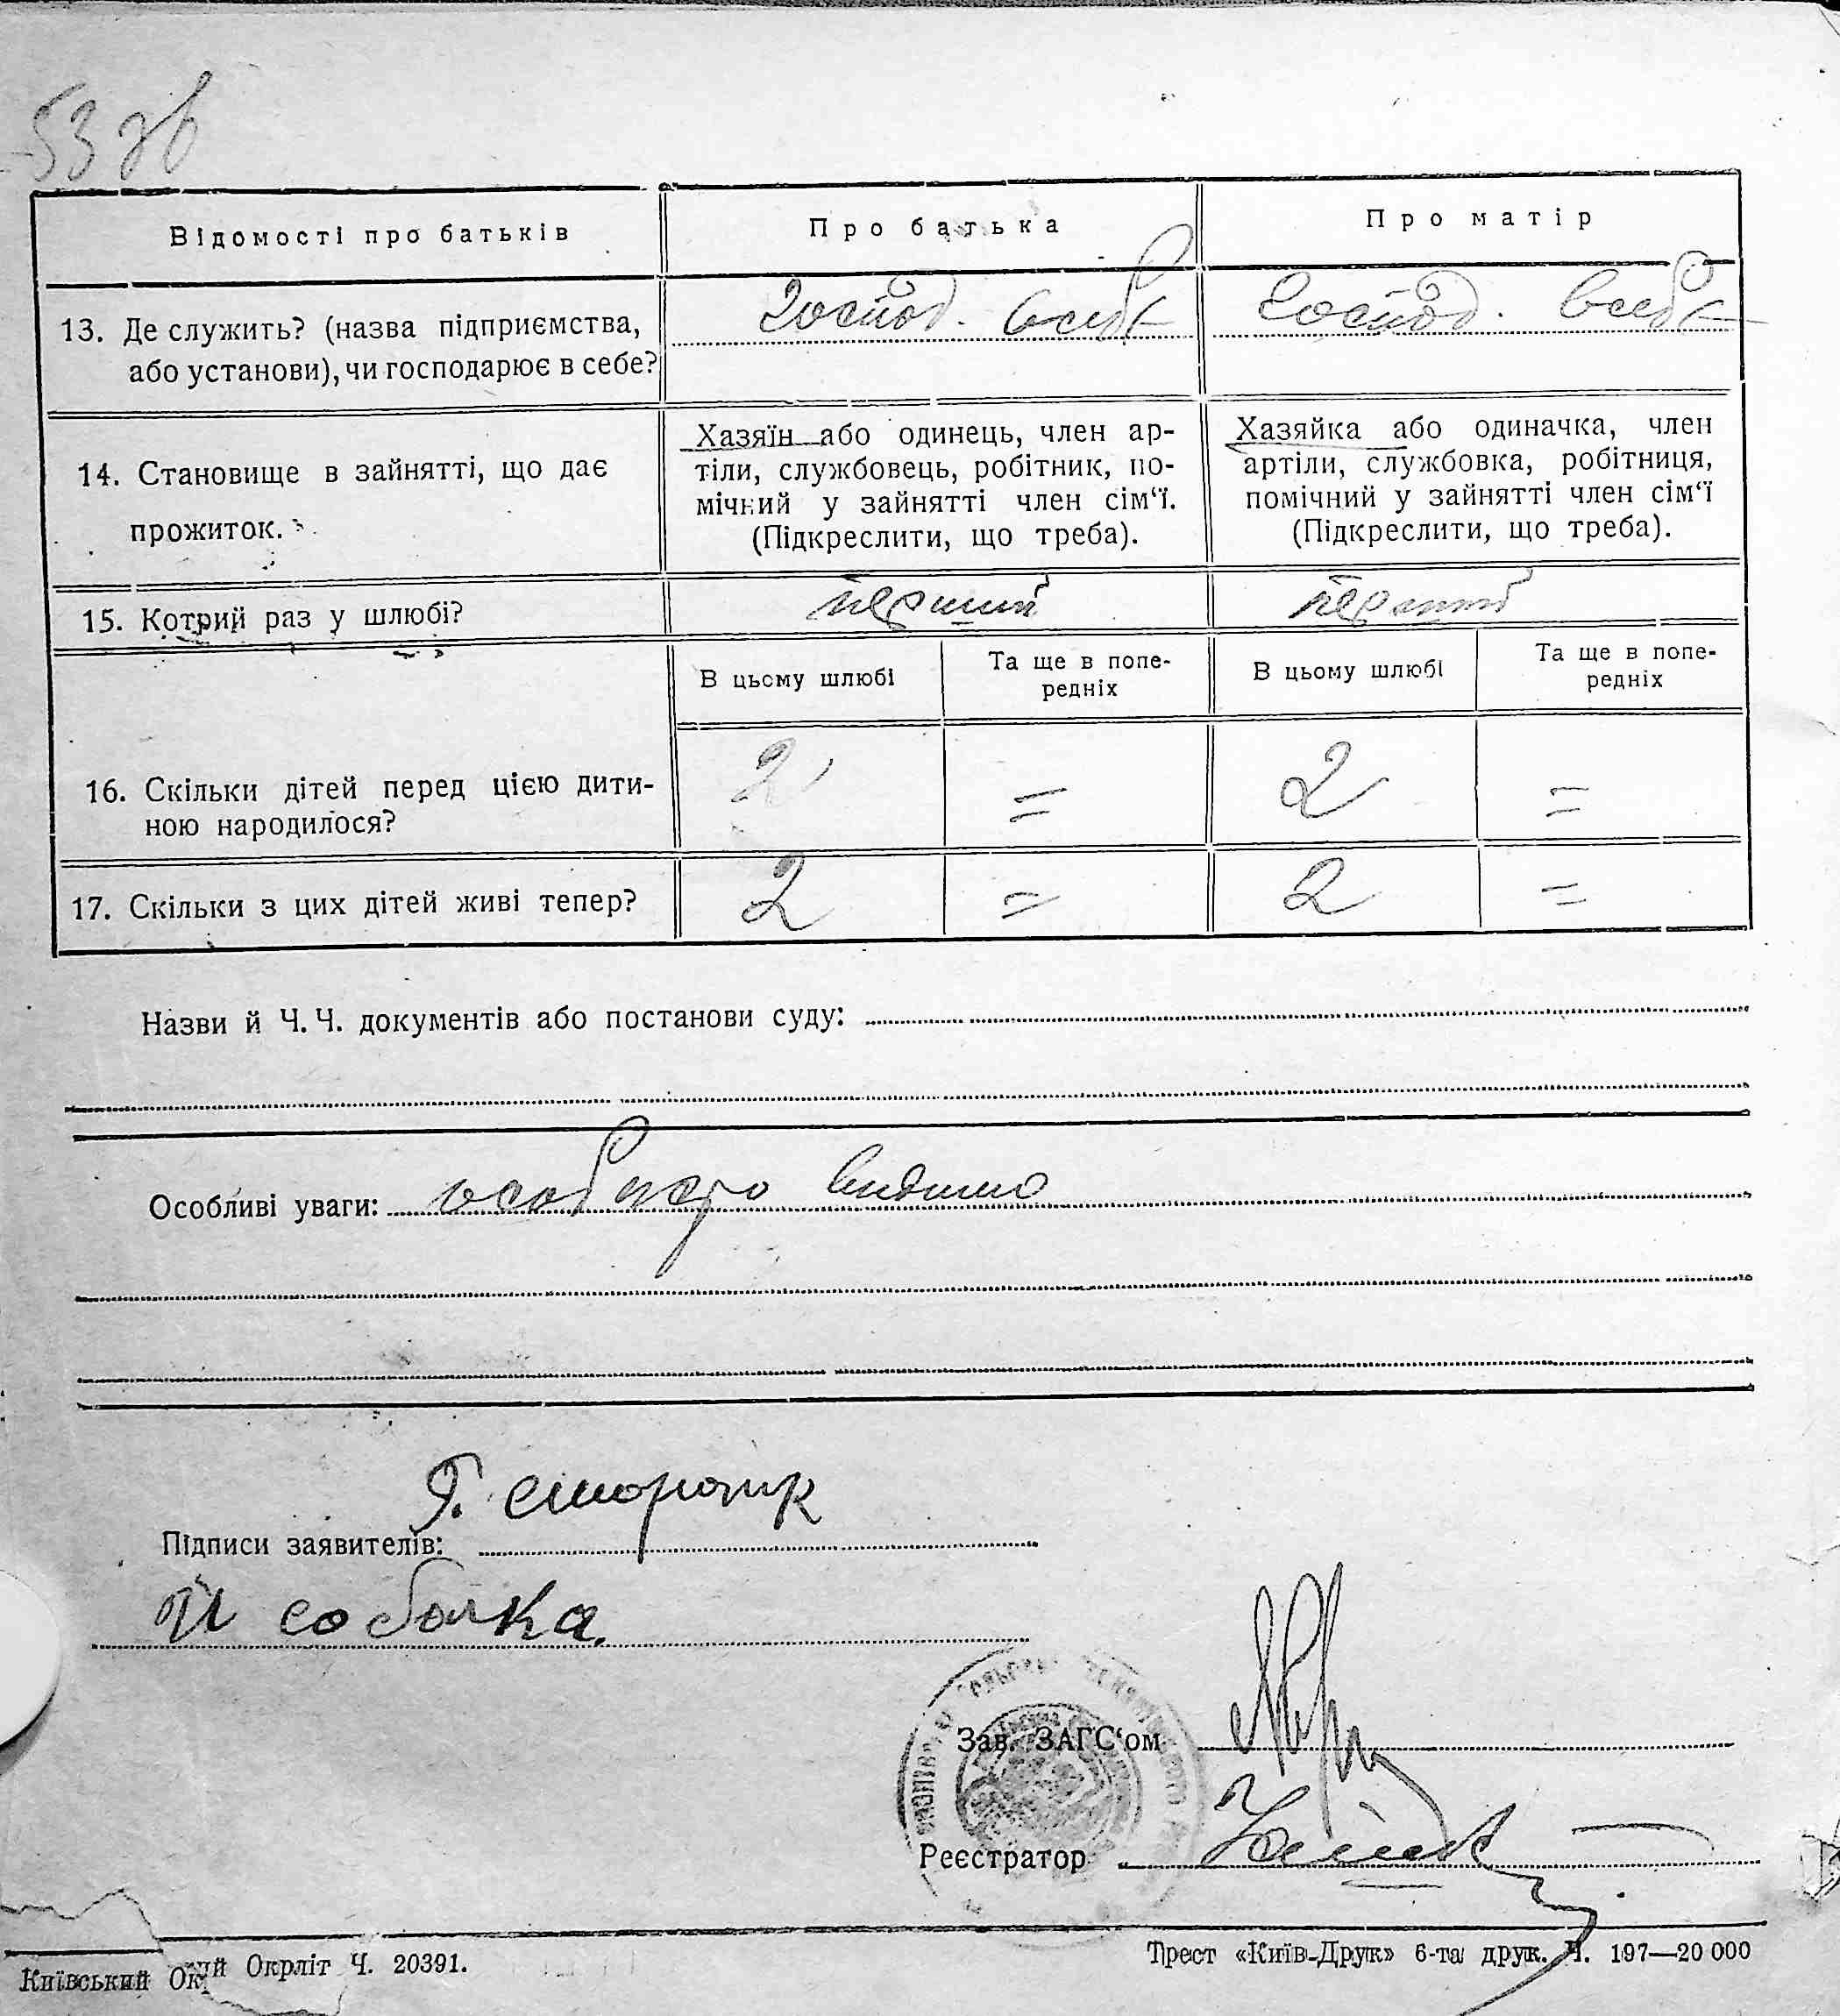 53 зв
Відомості про батьків
Про батька
Про матір
13. Де служить? (назва підприємства,
або установи), чи господарює в себе?
Господ. в себе
Господ. в себе
14. Становище в зайнятті, що дає
прожиток.
Хазяїн або одинець, член ар-
тіли, службовець, робітник, по-
мічний у зайнятті член сім‘ї.
(Підкреслити, що треба).
Хазяйка або одиначка, член
артіли, службовка, робітниця,
помічний у зайнятті член сім‘ї
(Підкреслити, що треба).
15. Котрий раз у шлюбі?
перший
перший
В цьому шлюбі
Та ще в попе-
редніх
В цьому шлюбі
Та ще в попе-
редніх
16. Скільки дітей перед цією дити-
ною народилося?
2
=
2
=
17. Скільки з цих дітей живі тепер?
2
=
2
=
Назви й Ч. Ч. документів або постанови суду:
Особливі уваги: особисто видимо
Підписи заявителів:
И собалка.
Зав. ЗАГС‘ом
Реєстратор
Київський Ок
ий Окрліт Ч. 20391.
Трест «Київ-Друк» 6-та друк. Ч. 197—20 000